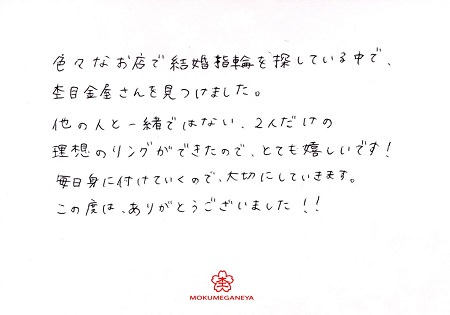 色々なお店で結婚指輪を探している中で、
杢目金屋さんを見つけました。
他の人と一緒ではない、2人だけの
理想のリングができたので、とても嬉しいです！
毎日身に付けていくので、大切にしていきます。
この度は、ありがとうございました！！
杢
MOKUMEGANEYA